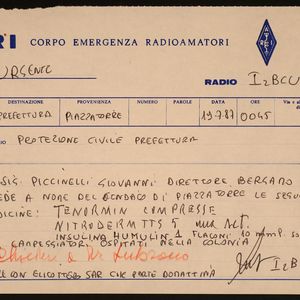 RI CORPO EMERGENZA RADIOAMATORI
URGENTE
RADIO I2BCU
DESTINAZIONE PROVENIENZA NUMERO PAROLE DATA ORE
PREFETTURA PIAZZATORRE 19.7.87 0045
PROTEZIONE CIVILE PREFETTURA
SIG. PICCINELLI GIOVANNI DIRETTORE BERGAMO
EDE A NOME DEL SINDACO DI PIAZZATORRE LE SEGUE
DICINE: TENORMIN COMPRESSE
NITRODERM TTS 5
INSULINA HUMULIN 1 FLACONE 10
CAMPEGGIATORI OSPITATI NELLA COLONIA
CON ELICOTTERO SAR CHE PARTE DOMATTINA I2B